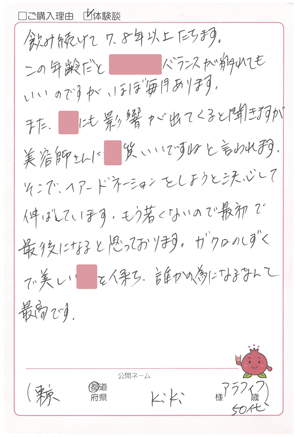 □ご購入理由 ☑体験談
飲み続けて7、8年以上たちます。
この年齢だと バランスが崩れても
いいのですが、ほぼ毎月あります。
また、 にも影響が出てくると聞きますが
美容師さんに 質いいですねと言われます。
そこで、ヘアードネーションをしようと決心して
伸ばしています。もう若くないので最初で
最後になると思っております。ガクロのしずく
で美しい を保ち、誰かの為になるなんて
最高です。
公開ネーム
(東京 都道府県 kiki 様 アラフィフ 歳)
50代